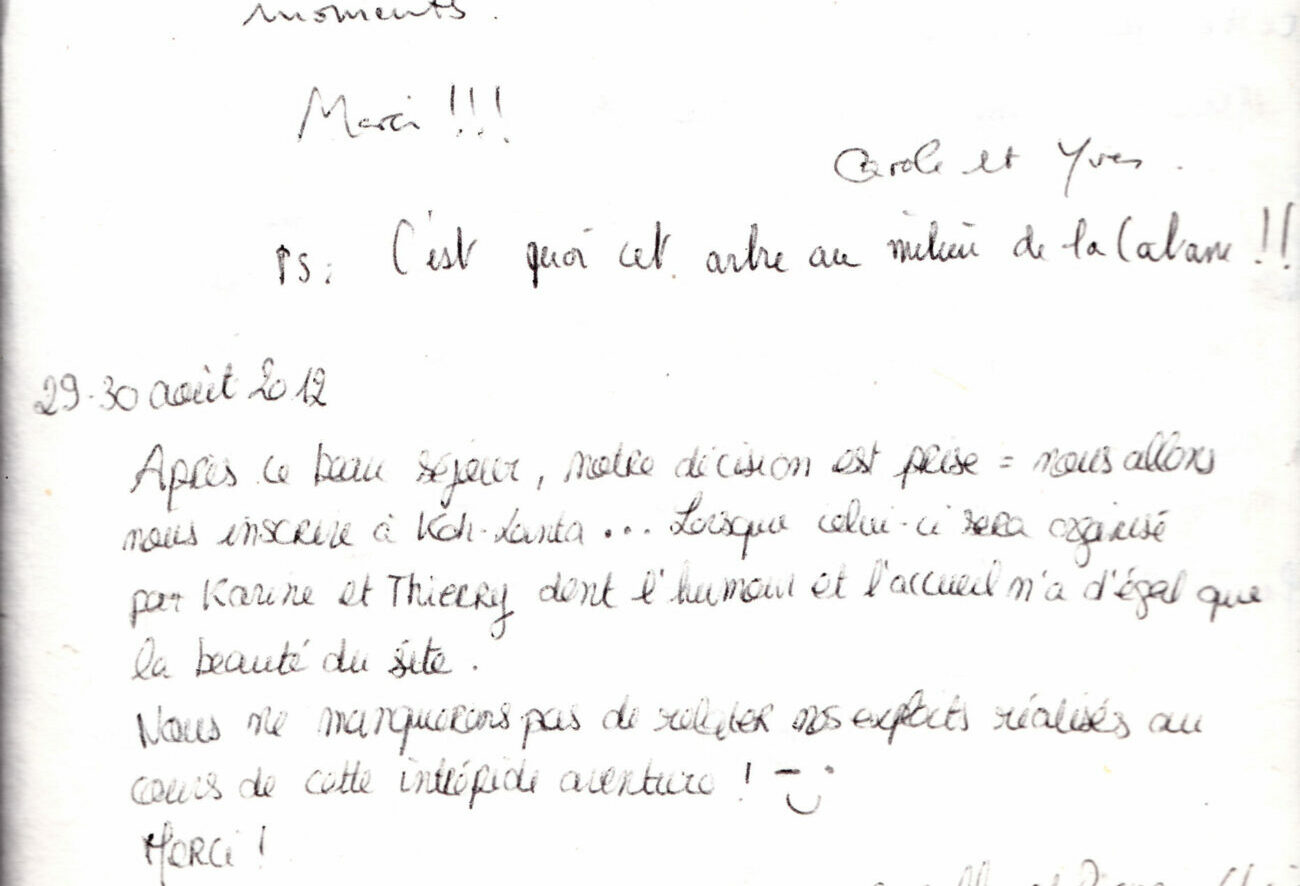 moments.
Merci !!!
Carole et Yves.
PS: C'est quoi cet arbre au milieu de la Cabane !!
29-30 août 2012
Après ce beau séjour, notre décision est prise = nous allons
nous inscrire à Koh-Lanta... Lorsque celui-ci sera organisé
par Karine et Thierry dont l'humour et l'accueil n'a d'égal que
la beauté du site.
Nous ne manquerons pas de relater nos exploits réalisés au
cours de cette intrépide aventure !
Merci !